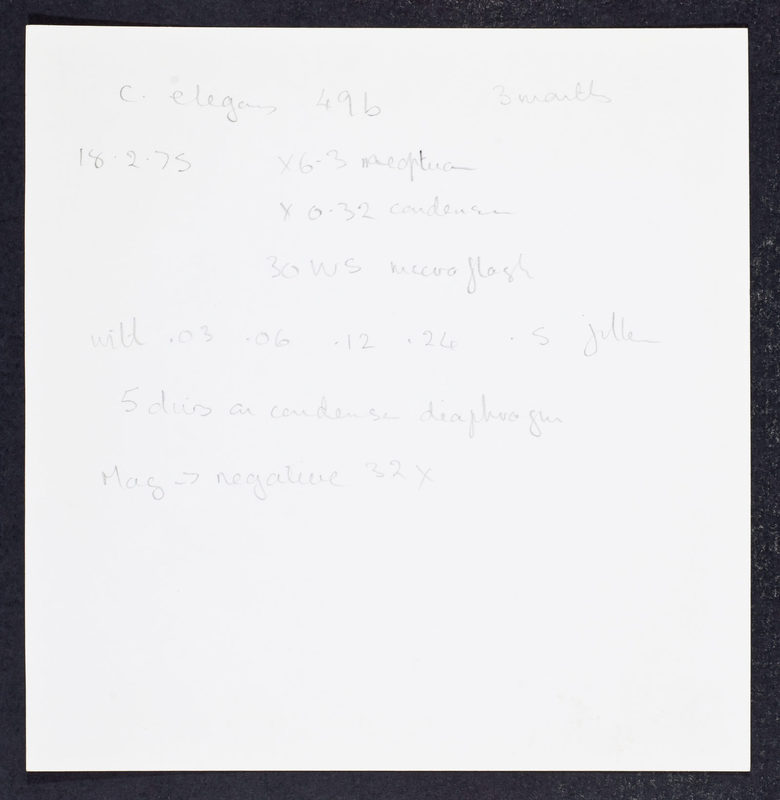 C. elegans 49b 3 months
18.2.75 x6.3 neopluar
x 0.32 condenser
30 WS macroflash
with .03 .06 .12 .24 .5 filter
5 divs on condenser diaphragm
Mag → negative 32x